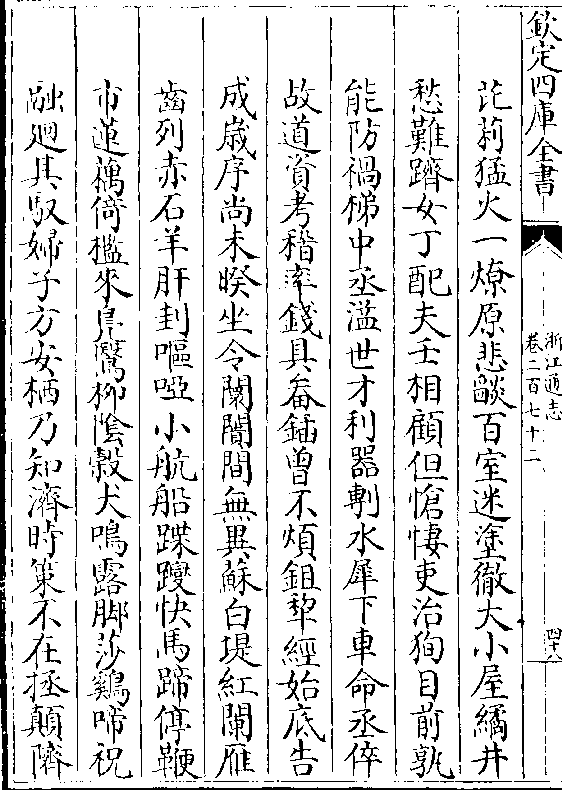 欽定四庫全書
浙江通志
卷二百七十二
茈莉猛火一燎原悲燄百室迷塗徹大小屋繘井
愁難躋女丁配夫壬相顧但愴悽吏治狥目前孰
能防禍梯中丞濫世才利器剸水犀下車命丞倅
故道資考稽率錢具畚鍤曾不煩鉏犂經始底告
成嵗序尚未暌坐令闤闠間無異蘇白堤紅闌雁
齒列赤石羊肝刲嘔啞小航船蹀躞快馬蹄停鞭
市蓮藕倚檻來鳧鷖柳陰㲉犬鳴露脚莎鷄啼祝
融廻其馭婦子方安栖乃知濟時策不在拯顛隮